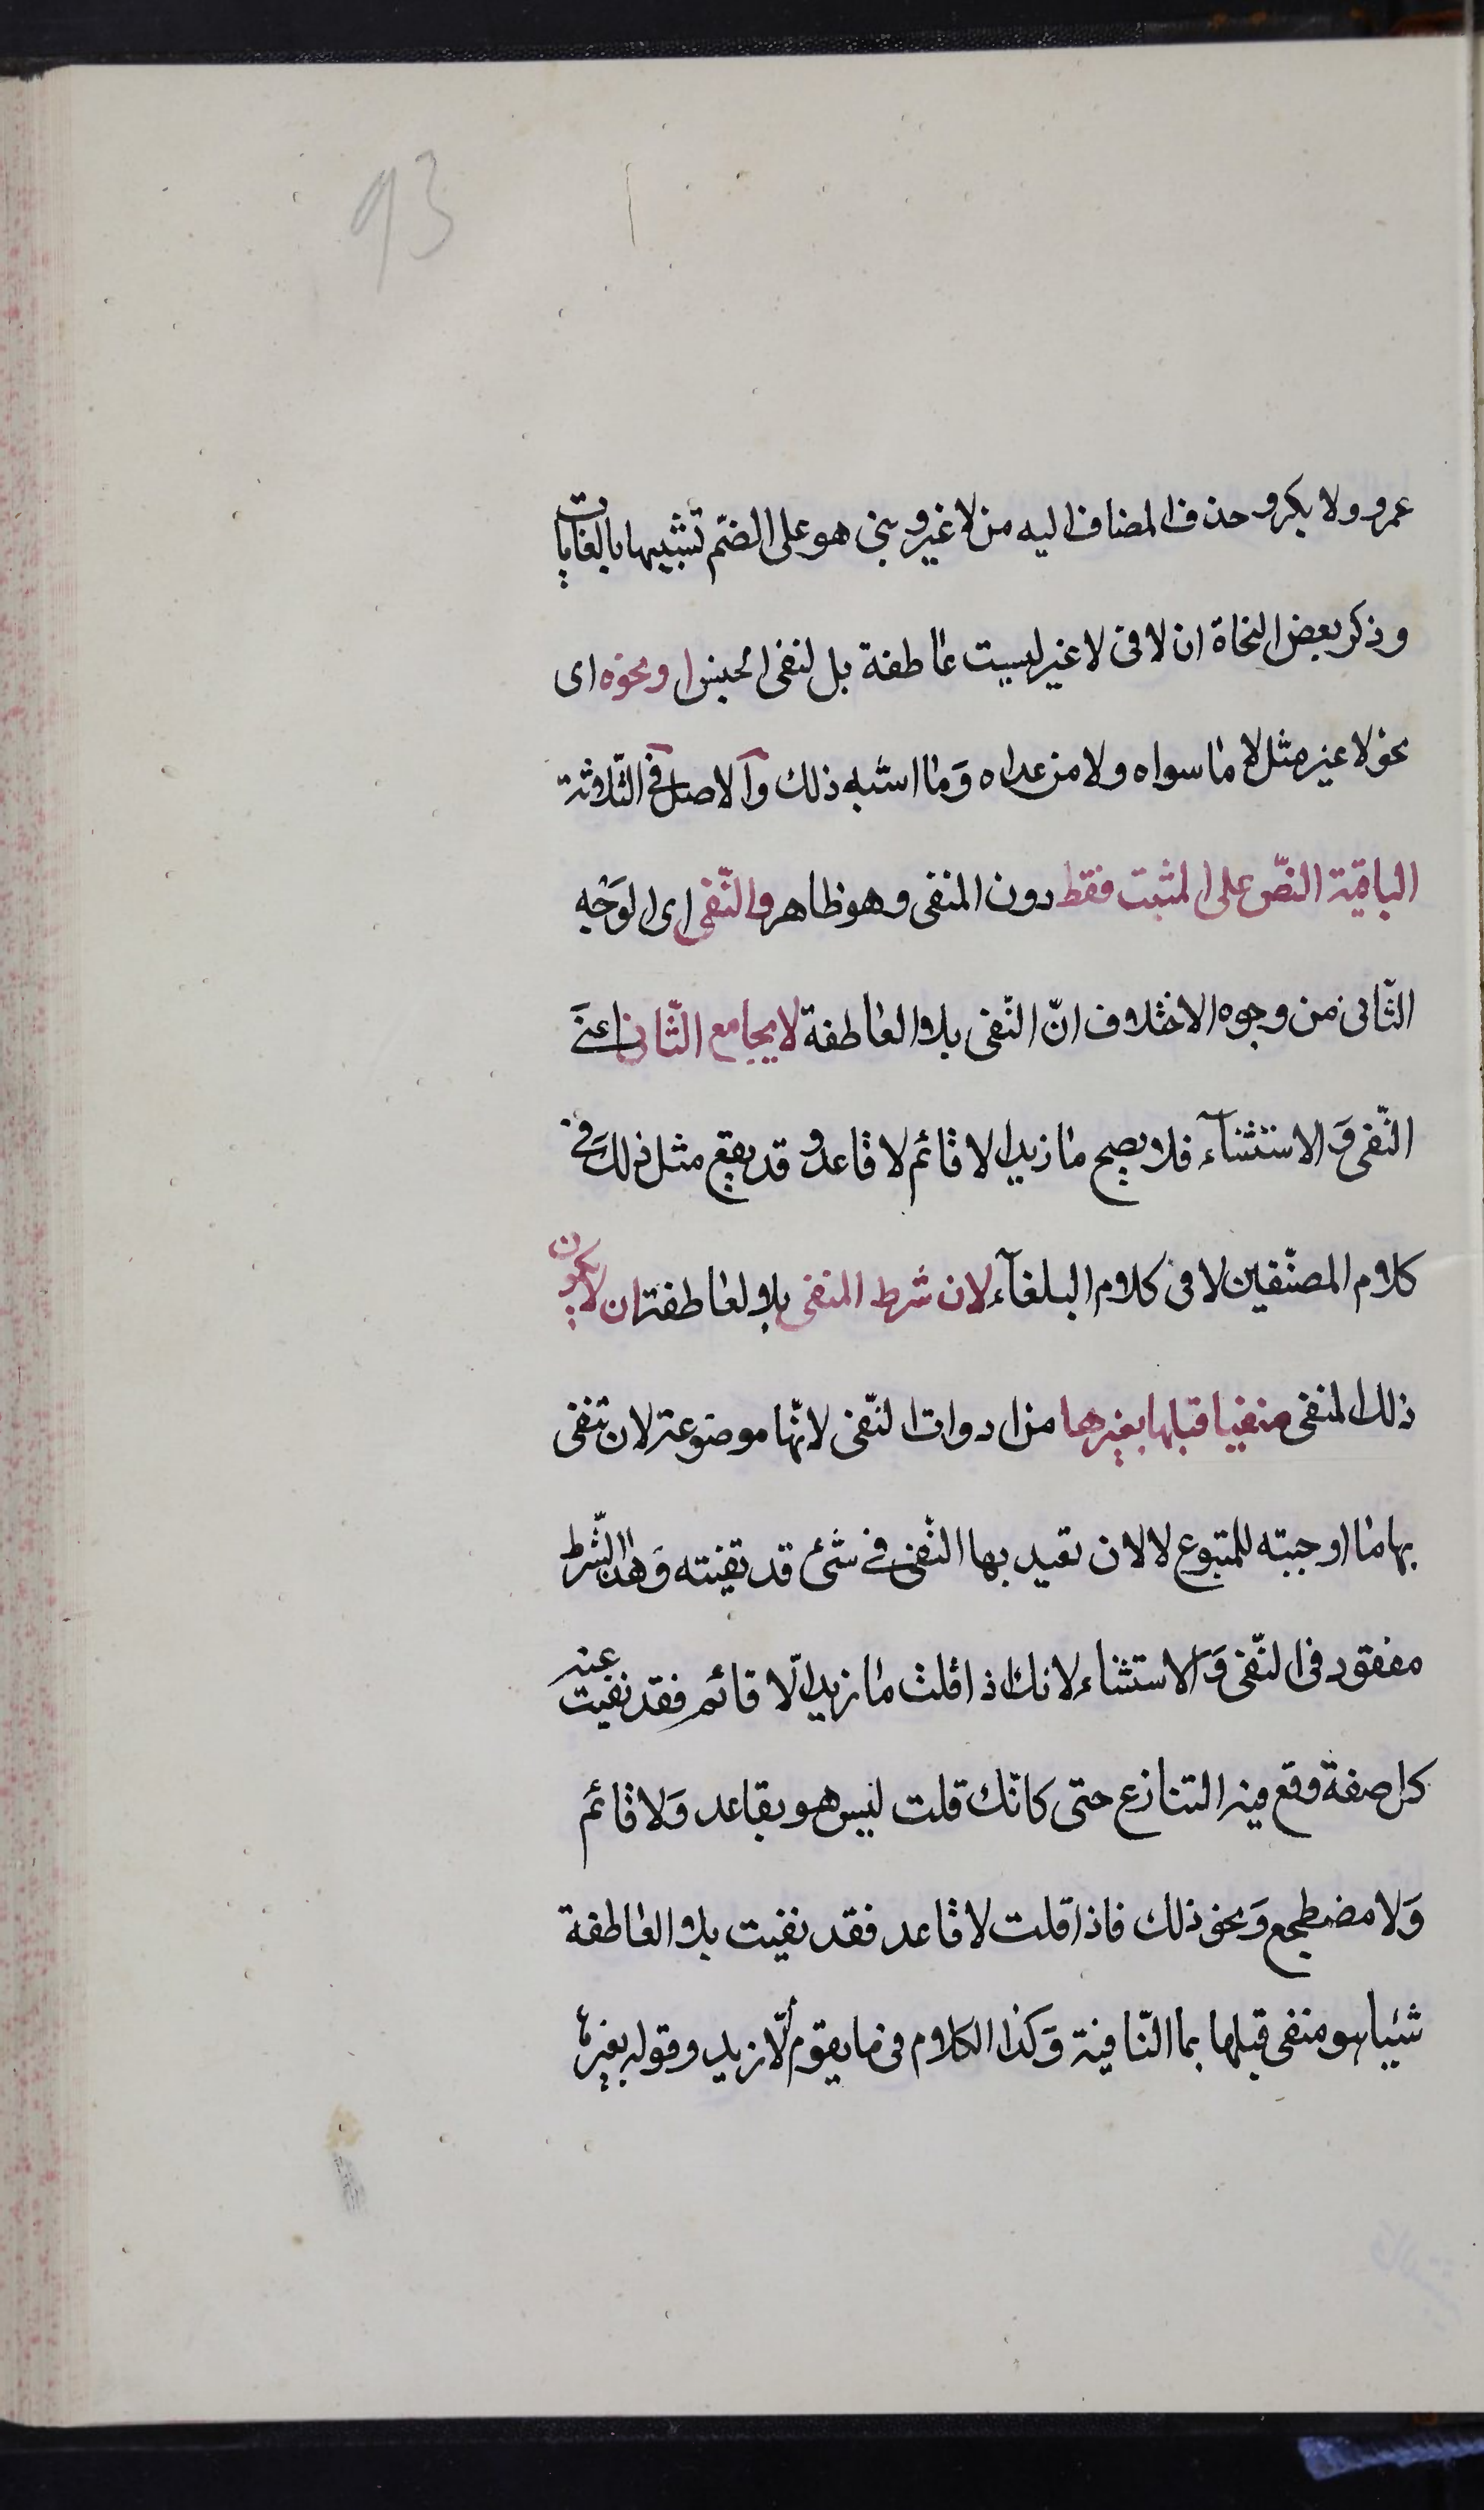 93
عمرو ولا بكر و حذف المضاف اليه من لا غير و بنى هو على الضمّ تشبيها بالغايات
و ذكر بعض النحاة ان لا فى لا غير ليست عاطفة بل لنفى الجنس او نحوه اى
نحو لا غير مثل لا ما سواه و لا من عداه وَ ما اشبه ذلك و الاصل فى الثلاثة
الباقية النصّ على المثبت فقط دون المنفى و هو ظاهر و النّفى اى الوَجْه
الثّانى من وجوه الاختلاف انّ النّفى بلا العاطفة لا يجامع الثّانى اعنى
النّفى وَ الاستثنآء فلا يصح ما زيد الا قائم لا قاعد و قد يقع مثل ذلك فى
كلام المصنّفين لا فى كلام البلغآء لان شرط المنفى بلا العاطفة ان لا يكون
ذلك المنفى منفيا قبلها بغيرها من ادوات النّفى لانّها موضوعة لان تنفى
بها ما اوجبته للمتبوع لا لان تعيد بها النّفى فى شئ قد نفيته وَ هذا الشّرط
مفقود فى النّفى وَ الاستثناء لانك اذا قلت ما زيد الّا قائم فقد نفيت عنه
كل صفة وقع فيه التنازع حتى كانّك قلت ليس هو بقاعد وَ لا قائم
وَ لا مضطجع وَ نحو ذلك فاذا قلت لا قاعد فقد نفيت بلا العاطفة
شيئا هو منفى قبلها بما النّافية وَ كذا الكلام فى ما يقوم الّا زيد و قوله بغيرها